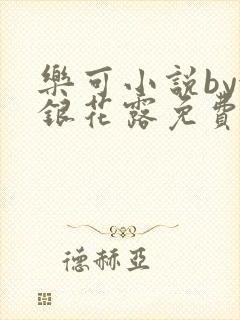 樂可小說by
銀花露免費
德赫亞